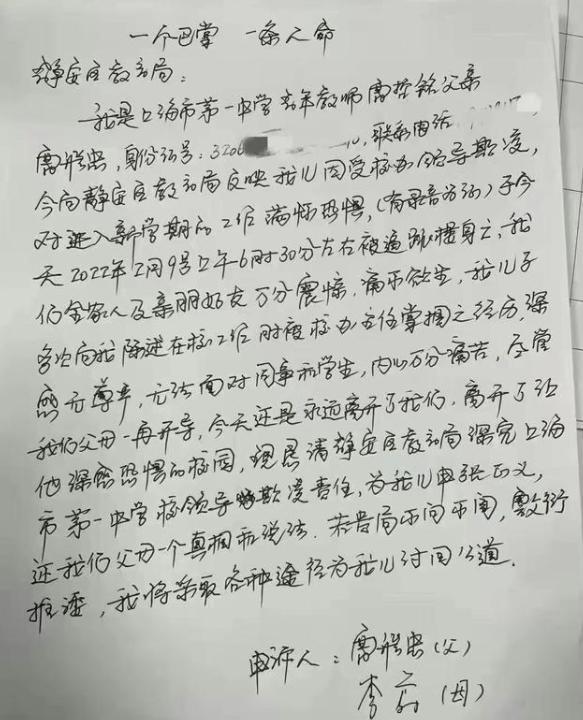 一个巴掌 一条人命
静安区教育局：
我是上海市第一中学青年教师唐哲铭父亲
唐 忠，身份证号：3206 联系电话
今向静安区教育局反映我儿因受校办领导欺凌，
对进入新学期的工作满怀恐惧，(有录音为证)于今
天2022年2月9号上午6时30分左右被逼跳楼身亡，我
们全家人及亲朋好友万分震惊，痛不欲生，我儿子
多次向我陈述在校工作时被校办主任掌掴之经历，深
感无尊严，无法面对同事和学生，内心万分痛苦，尽管
我们父母一再开导，今天还是永远离开了我们，离开了让
他深感恐惧的校园，现恳请静安区教育局深究上海
市第一中学校领导欺凌责任，为我儿申张正义，
还我们父母一个真相和说法．若贵局不问不闻，敷衍
推诿，我将采取各种途径为我儿讨回公道．
申诉人：唐 忠(父)
李 (母)